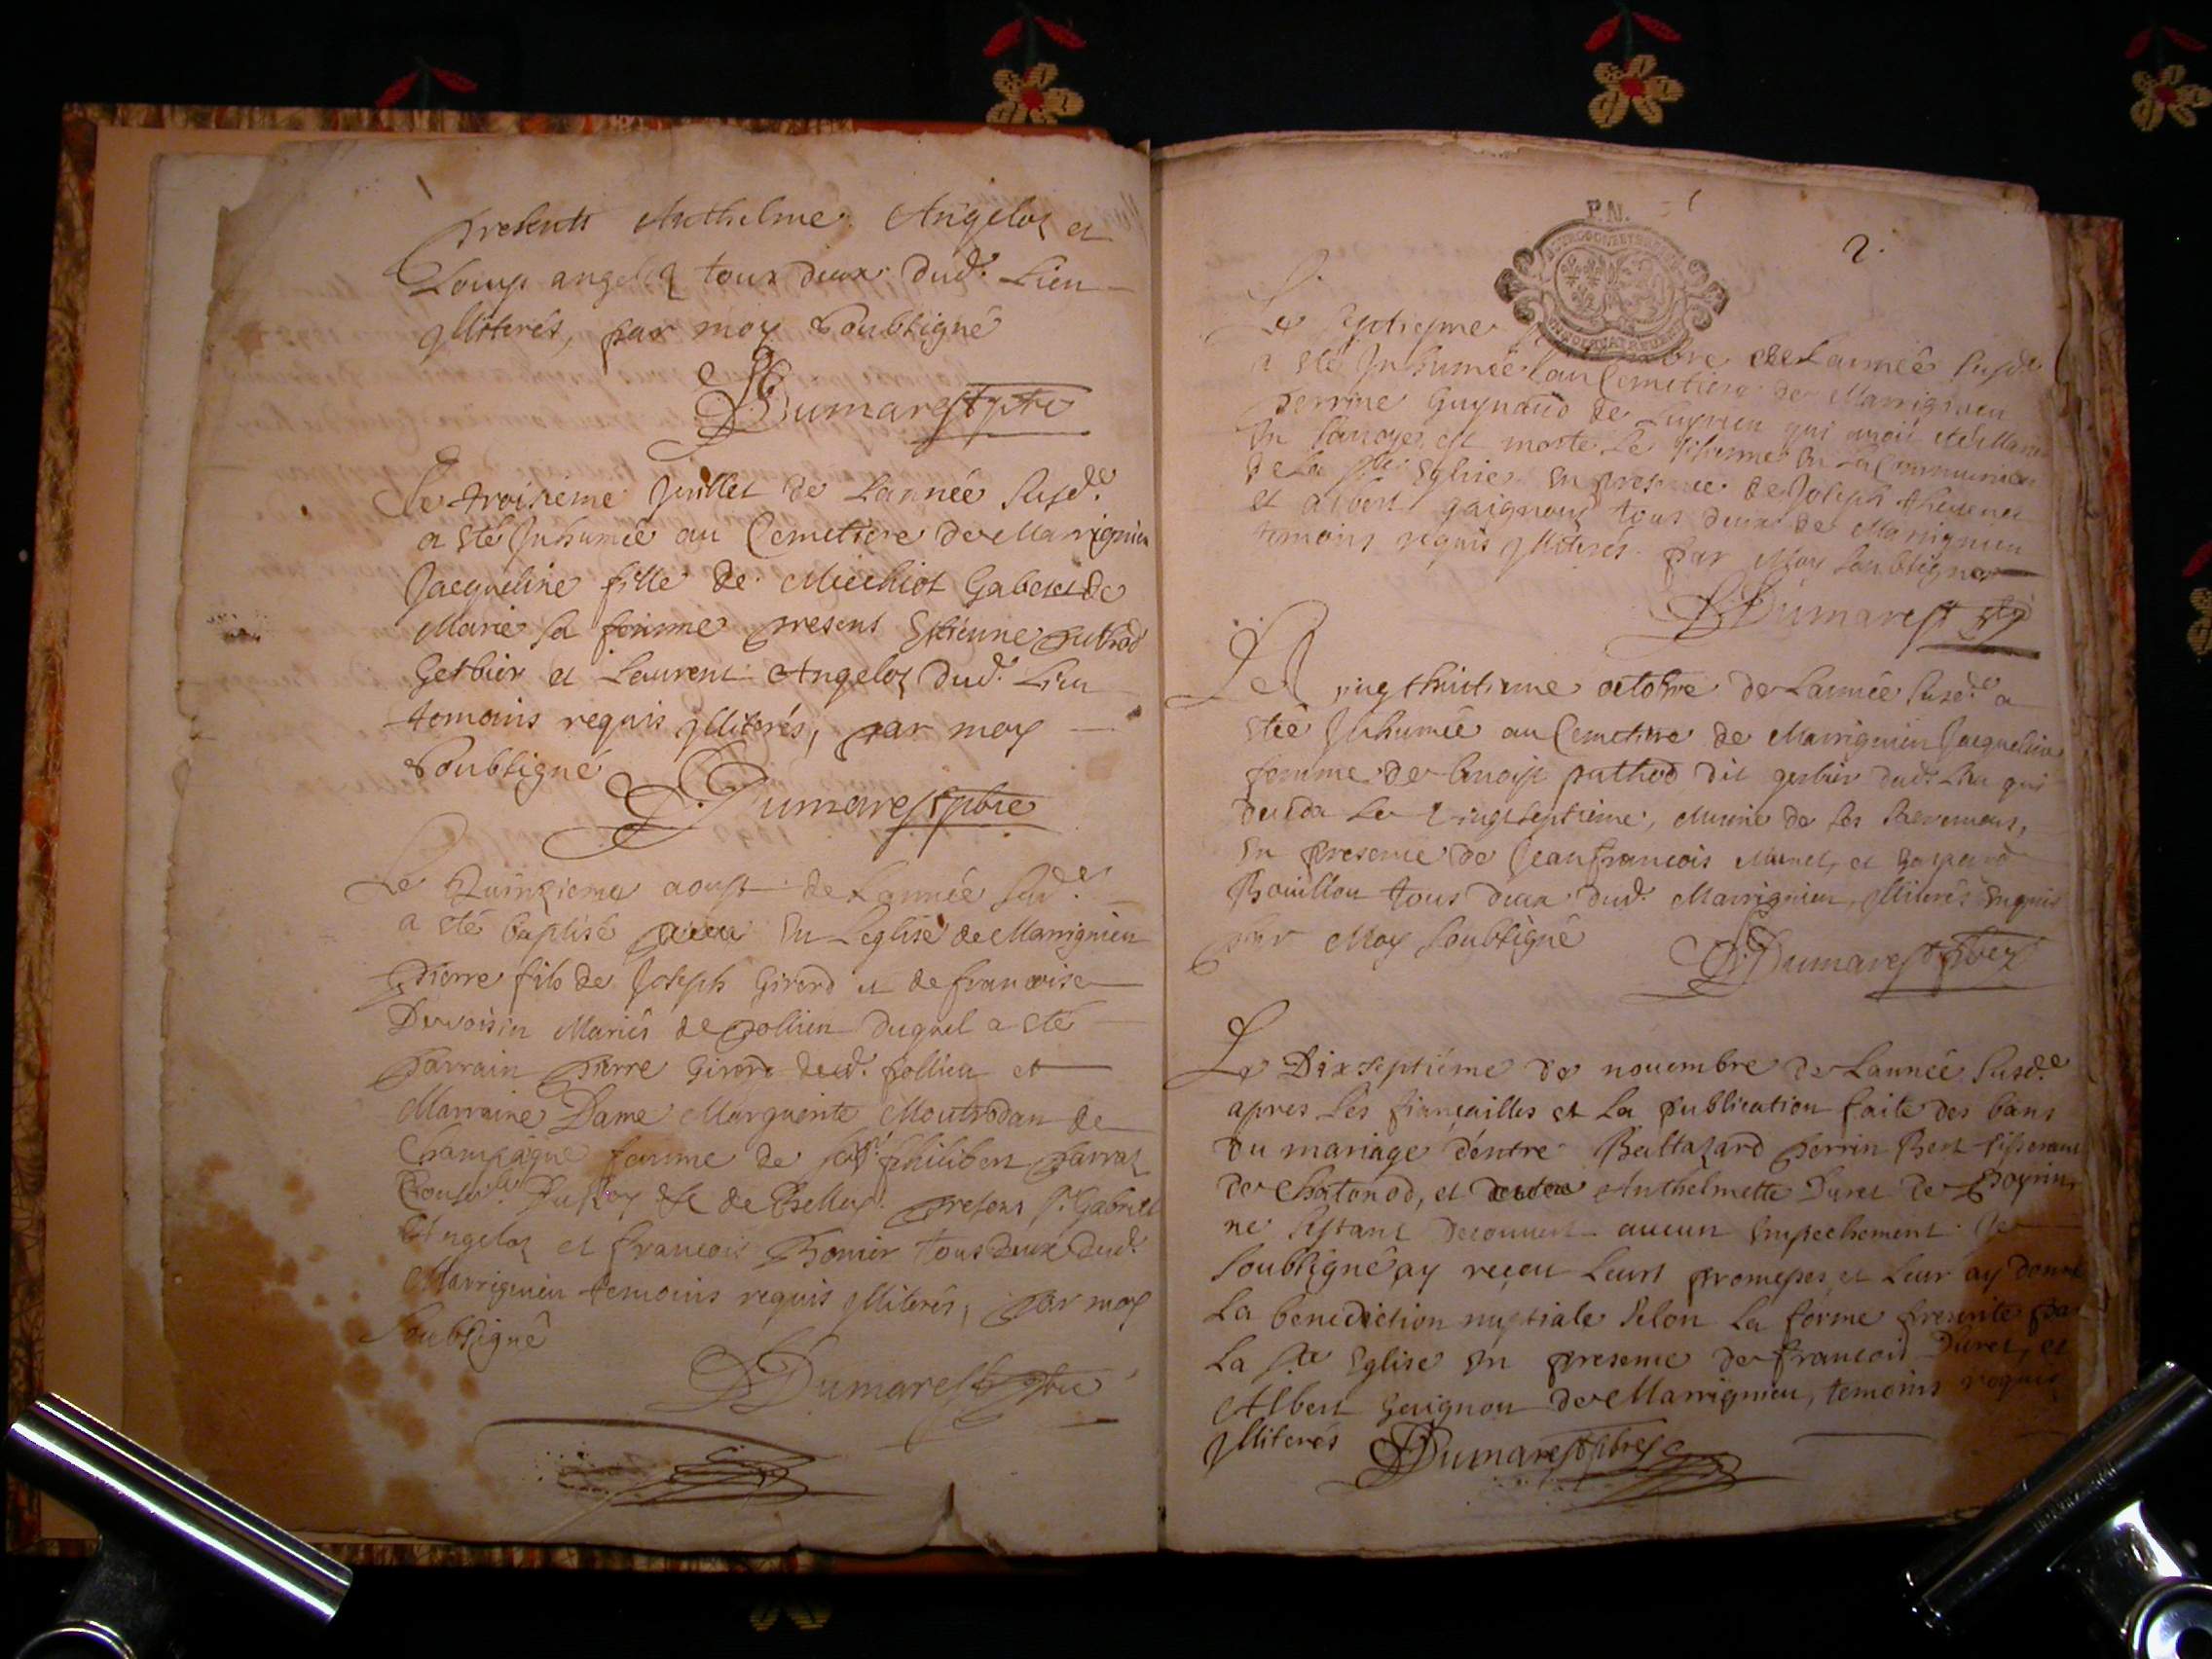 presents Anthelme Angeloz et
Loup angeloz tous deux dud. Lieu
Illiterés, par moy Soubsigné
Dumarest ptre
Le troisieme Juillet de Lannée Susd.e
a esté Inhumée au Cemetiere de Marrignieu
Jacqueline fille de Michiot Gabet et de
Marie sa femme presens Estienne puthod
Gerbier et Laurent Angeloz dud. Lieu
temoins requis Illiterés, par moy
Soubsigné
Dumarest pbre
Le Quinzieme aoust de Lannée sud.e
a esté baptisé En Leglise de Marrignieu
pierre fils de Joseph Girerd et de francoise
Devoisin Mariés de pollieu duquel a esté
parrain pierre Girerd dud. pollieu et
Marraine Dame Marguerite de
Champagne femme de philibert parraz
Du Roy de Belley. presens Sr. Gabriel
Angeloz et francois Bonier tous deux dud.
Marrignieu temoins requis Illiterés, par moy
Soubsigné
Dumarest pbre
P.N.
2.
Le de Lannée susd.e
a esté Inhumée au Cemetiere de Marrignieu
perrine de qui avoit
En est morte Le En La Communion
de La Ste Eglise En presence de Joseph
et albert gaignon tous deux de Marignieu
temoins requis Illiterés par Moy Soubsigné
Dumarest
Le vingthuitieme octobre de Lannée susd.e a
esté Inhumée au Cemetiere de Marrignieu Jacqueline
femme de benoist puthod dit gerbier dud. Lieu qui
deceda Le vingtseptieme, Munie de ses Sacremens,
En presence de Jeanfrancois et Gaspard
Bouillon tous deux dud. Marrignieu, Illiterés Enquis
par Moy Soubsigné
Dumarest pbre
Le Dixseptiéme de nouembre de Lannée Susd.e
apres Les fiançailles et La publication faite des bans
du mariage d'entre Baltazard perrin Bert tisserand
de Chatonod, et Anthelmette Duret de
ne sestant decouuert aucun Empechement Je
Soubsigné ay reçeu Leurs promesses et Leur ay donné
La benediction nuptiale Selon La forme prescrite par
La Ste Eglise En presence de francois Duret, et
Albert Gaignon de Marrignieu, temoins requis
Illiterés
Dumarest pbre